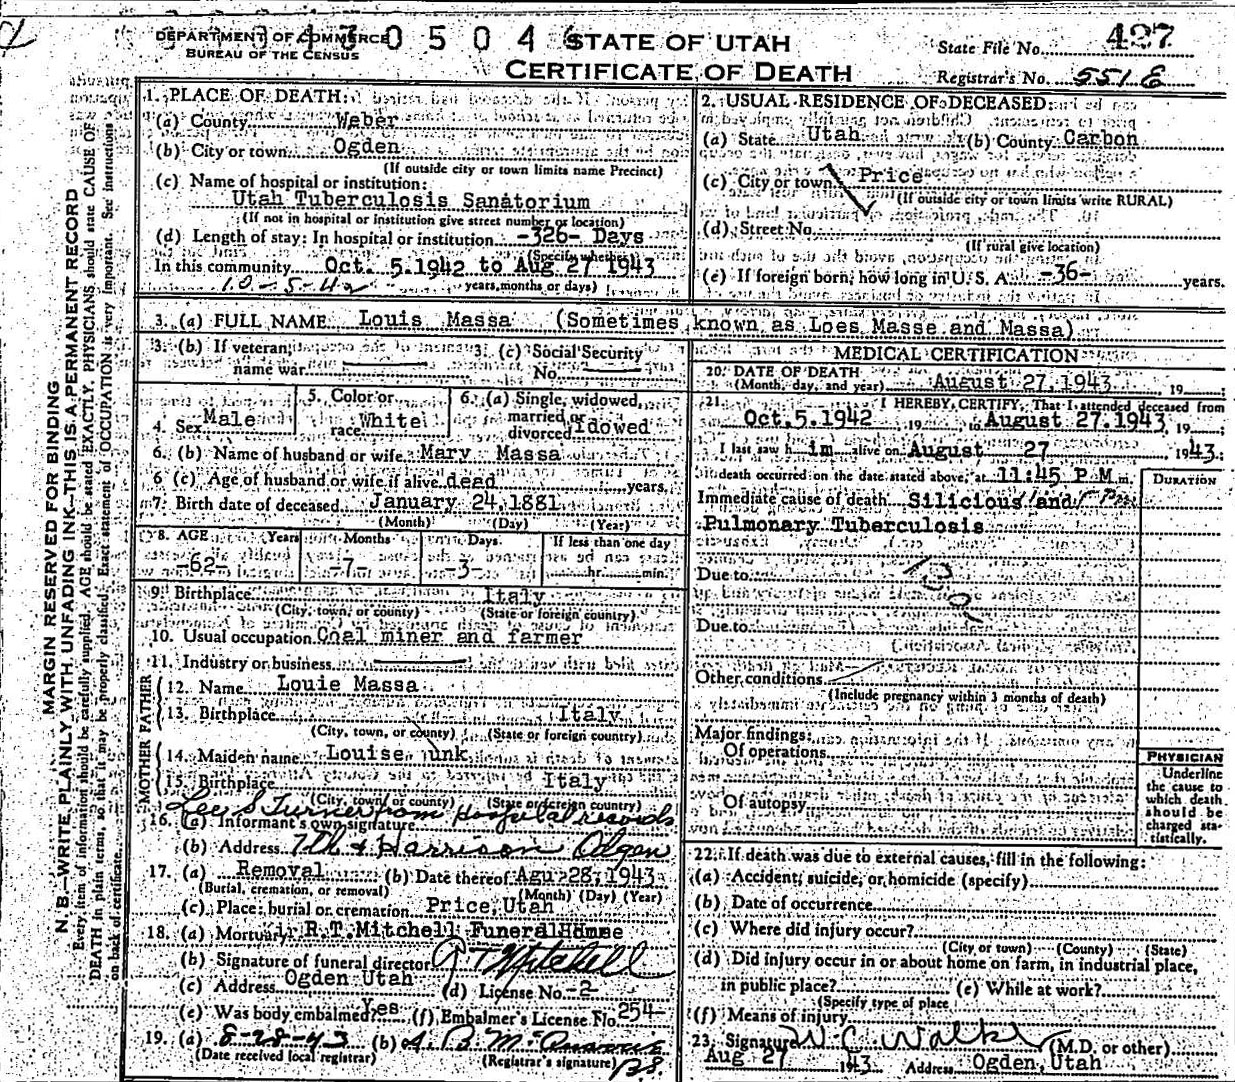 DEPARTMENT OF COMMERCE
BUREAU OF THE CENSUS
STATE OF UTAH
CERTIFICATE OF DEATH
State File No. 427
Registrar's No. 551 E
MARGIN RESERVED FOR BINDING
N. B.—WRITE PLAINLY WITH UNFADING INK—THIS IS A PERMANENT RECORD
Every item of information should be carefully supplied. AGE should be stated EXACTLY. PHYSICIANS should state CAUSE OF
DEATH in plain terms, so that it may be properly classified. Exact statement of OCCUPATION is very important. See instructions
on back of certificate.
1. PLACE OF DEATH:
(a) County Weber
(b) City or town Ogden
(If outside city or town limits name Precinct)
(c) Name of hospital or institution:
Utah Tuberculosis Sanatorium
(If not in hospital or institution give street number or location)
(d) Length of stay: In hospital or institution -326- Days
(Specify whether
In this community Oct. 5.1942 to Aug 27 1943
10-5-42 years, months or days)
2. USUAL RESIDENCE OF DECEASED:
(a) State Utah (b) County Carbon
(c) City or town Price
(If outside city or town limits write RURAL)
(d) Street No.
(If rural give location)
(e) If foreign born, how long in U. S. A. -36- years.
3. (a) FULL NAME Louis Massa (Sometimes known as Loes Masse and Massa)
3. (b) If veteran, name war
3. (c) Social Security No.
4. Sex Male
5. Color or race White
6. (a) Single, widowed, married or divorced Widowed
6. (b) Name of husband or wife Mary Massa
6 (c) Age of husband or wife if alive dead years.
7. Birth date of deceased January 24,1881
(Month) (Day) (Year)
8. AGE Years Months Days If less than one day
-62- -7- -3- hr. min.
9. Birthplace Italy
(City, town, or county) (State or foreign country)
10. Usual occupation Coal miner and farmer
11. Industry or business
FATHER
12. Name Louie Massa
13. Birthplace Italy
(City, town, or county) (State or foreign country)
MOTHER
14. Maiden name Louise unk
15. Birthplace Italy
(City, town or county) (State or foreign country)
Lee S Turner from Hospital records
16. (a) Informant's own signature
(b) Address 7th & Harrison Ogden
17. (a) Removal (b) Date thereof Agu 28, 1943
(Burial, cremation, or removal) (Month) (Day) (Year)
(c) Place: burial or cremation Price, Utah
18. (a) Mortuary R.T. Mitchell Funeral Home
(b) Signature of funeral director R T Mitchell
(c) Address Ogden Utah (d) License No. -2-
(e) Was body embalmed? Yes (f) Embalmer's License No. 254-
19. (a) 8-28-43 (b)
(Date received local registrar) (Registrar's signature)
MEDICAL CERTIFICATION
20. DATE OF DEATH
(Month, day, and year) August 27,1943 , 19 ;
21. I HEREBY CERTIFY, That I attended deceased from
Oct.5.1942 , 19 to August 27.1943, 19 ;
I last saw h im alive on August 27 , 1943.;
death occurred on the date stated above, at 11:45 P.M m.
DURATION
Immediate cause of death Silicious and
Pulmonary Tuberculosis
Due to
Due to
Other conditions
(Include pregnancy within 3 months of death)
Major findings:
Of operations
Of autopsy
PHYSICIAN
Underline
the cause to
which death
should be
charged sta-
tistically.
22. If death was due to external causes, fill in the following:
(a) Accident, suicide, or homicide (specify)
(b) Date of occurrence
(c) Where did injury occur?
(City or town) (County) (State)
(d) Did injury occur in or about home on farm, in industrial place,
in public place? (e) While at work?
(Specify type of place
(f) Means of injury
23. Signature W. C. Walker (M.D. or other)
Aug 27 1943. Address Ogden, Utah